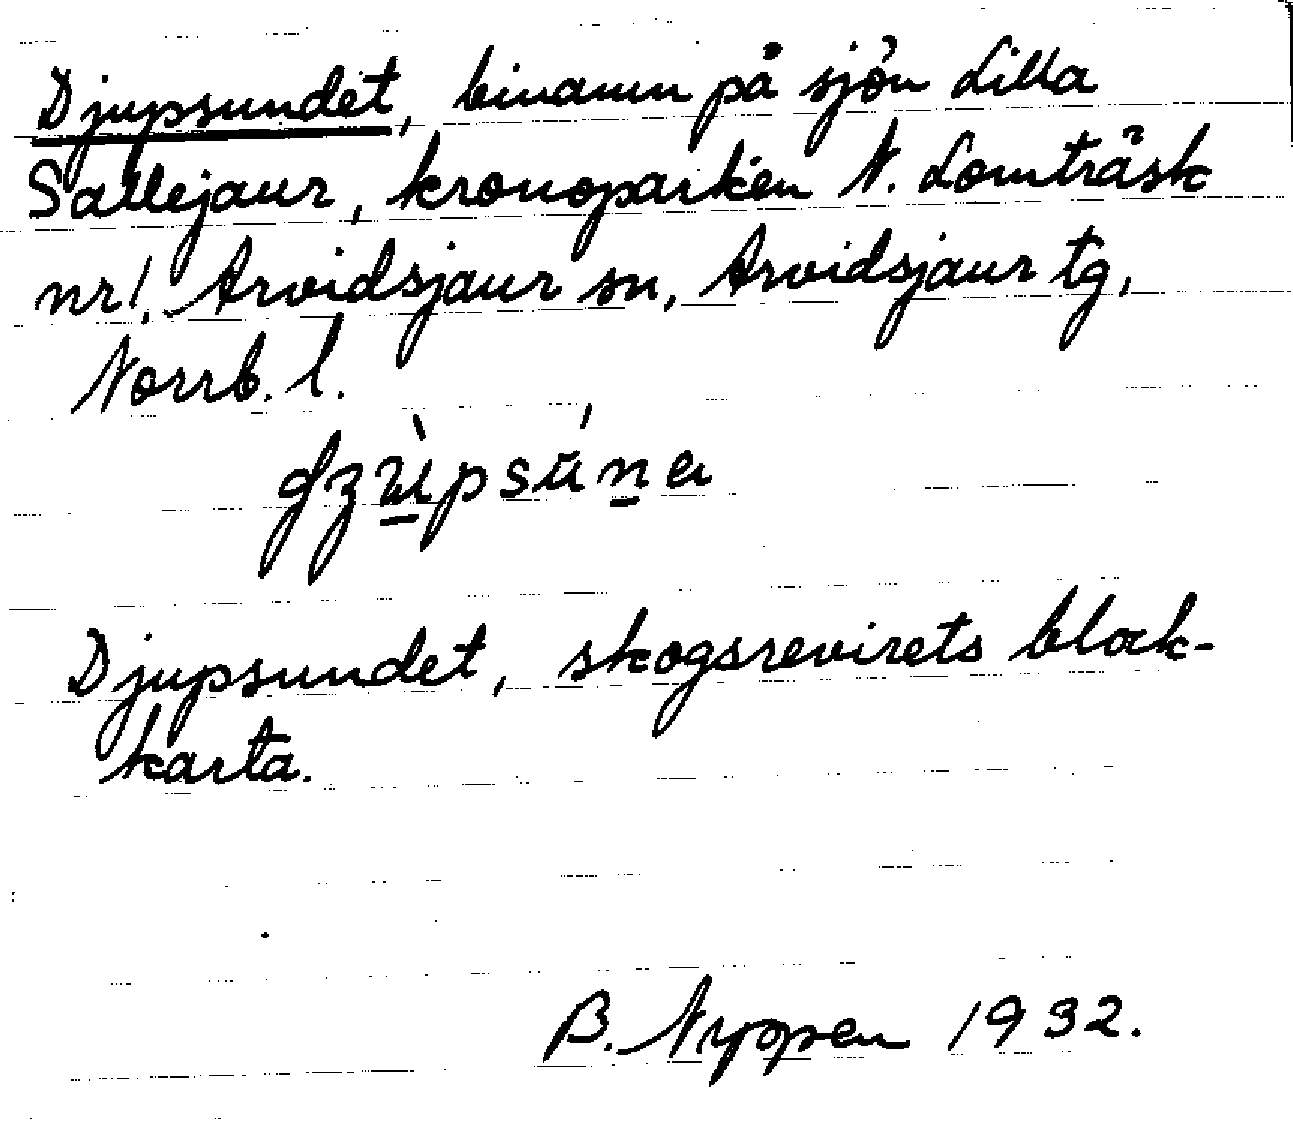 Djupsundet, binamn på sjön Lilla
Sallejaur, kronoparken N. Lomträsk
nr 1, Arvidsjaur sn, Arvidsjaur tg,
Norrb. l.
Djupsundet, skogsrevirets block-
karta.
B. Nyppen 1932.